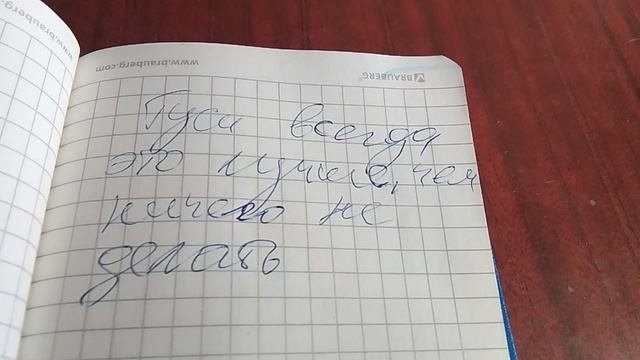 www.brauberg.com
www.brauberg.com
BRAUBERG®
Гуси всегда
это лучше, чем
ничего не
делать